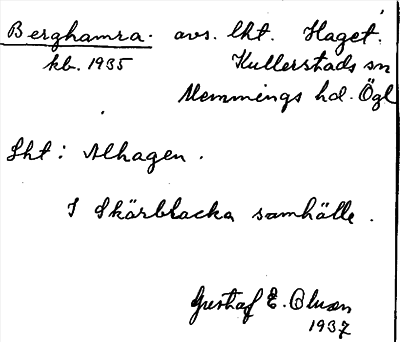 Berghamra. avs. lht. Haget.
kb. 1935 Kullerstads sn
Memmings hd. Ögl
Lht: Alhagen.
I Skärblacka samhälle.
Gustaf E. Bluen
1937